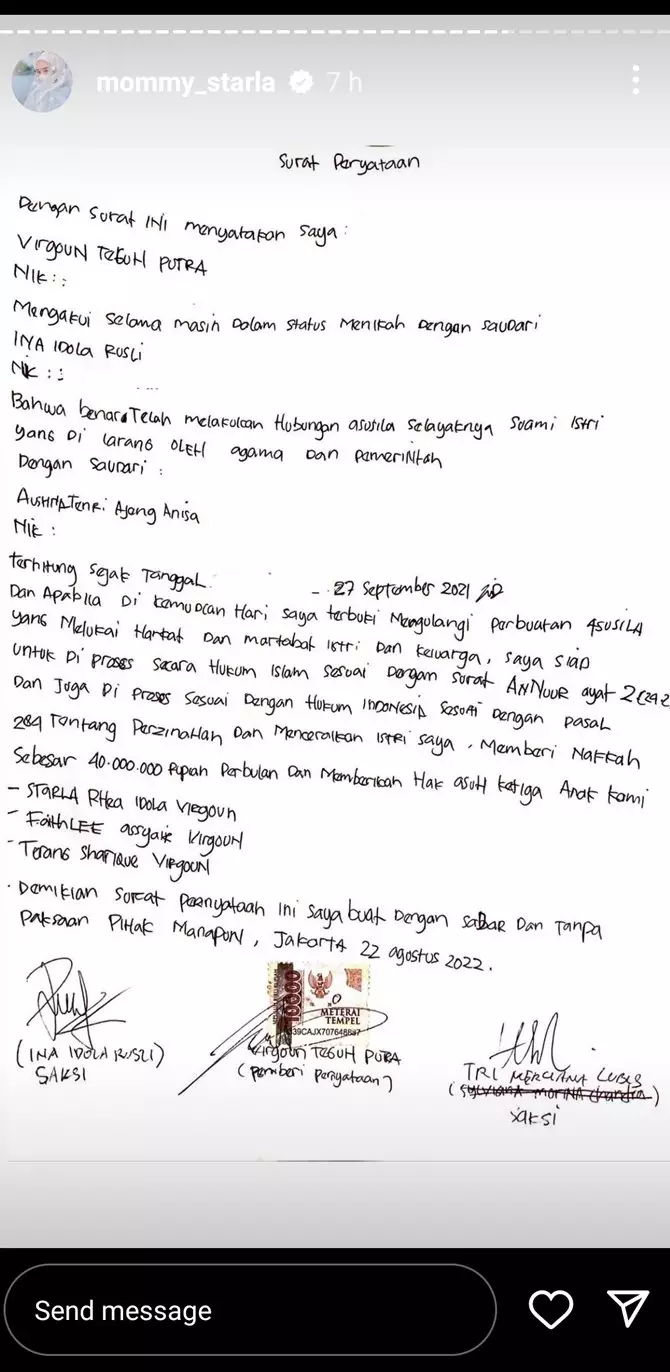 mommy_starla 7 h
Surat Peryataan
Dengan Surat INI menyatakan saya :
VIRGOUN TEGUH PUTRA
NIK : :
Mengakui selama masih Dalam status Menikah Dengan Saudari
INA IDOLA RUSLI
NIK : :
Bahwa benar Telah melakukan Hubungan asusila selayaknya Suami Istri
yang Di larang OLEH agama Dan Pemerintah
Dengan Saudari :
Tenri Ajeng Anisa
NIK :
Terhitung Sejak Tanggal - 27 September 2021
Dan Apabila Di Kemudian Hari saya terbukti Mengulangi Perbuatan ASUSILA
yang Melukai Harkat Dan martabat istri Dan keluarga, saya siap
untuk Di Proses Secara Hukum Islam Sesuai Dengan surat ANNUUR ayat 2
Dan Juga Di Proses Sesuai Dengan Hukum INDONESIA Sesuai Dengan Pasal
284 Tentang Perzinahan Dan Menceraikan Istri saya, Memberi Nafkah
Sebesar 40.000.000 Rupiah Perbulan Dan Memberikan Hak asuH ketiga Anak kami
- STARLA RHea IDOLA VIRGOUN
- FaithLEE assyaik VIRGOUN
- Terang Sharique VIRGOUN
Demikian Surat Pernyataan Ini saya buat Dengan saDAR Dan Tanpa
Paksaan Pihak Manapun, Jakarta 22 agustus 2022.
10000
METERAI
TEMPEL
39CAJX707648887
(INA IDOLA RUSLI)
SAKSI
VIRGOUN TEGUH PUTRA
(Pemberi Peryataan)
TRI MERCIANA LUBIS
SAKSI
Send message